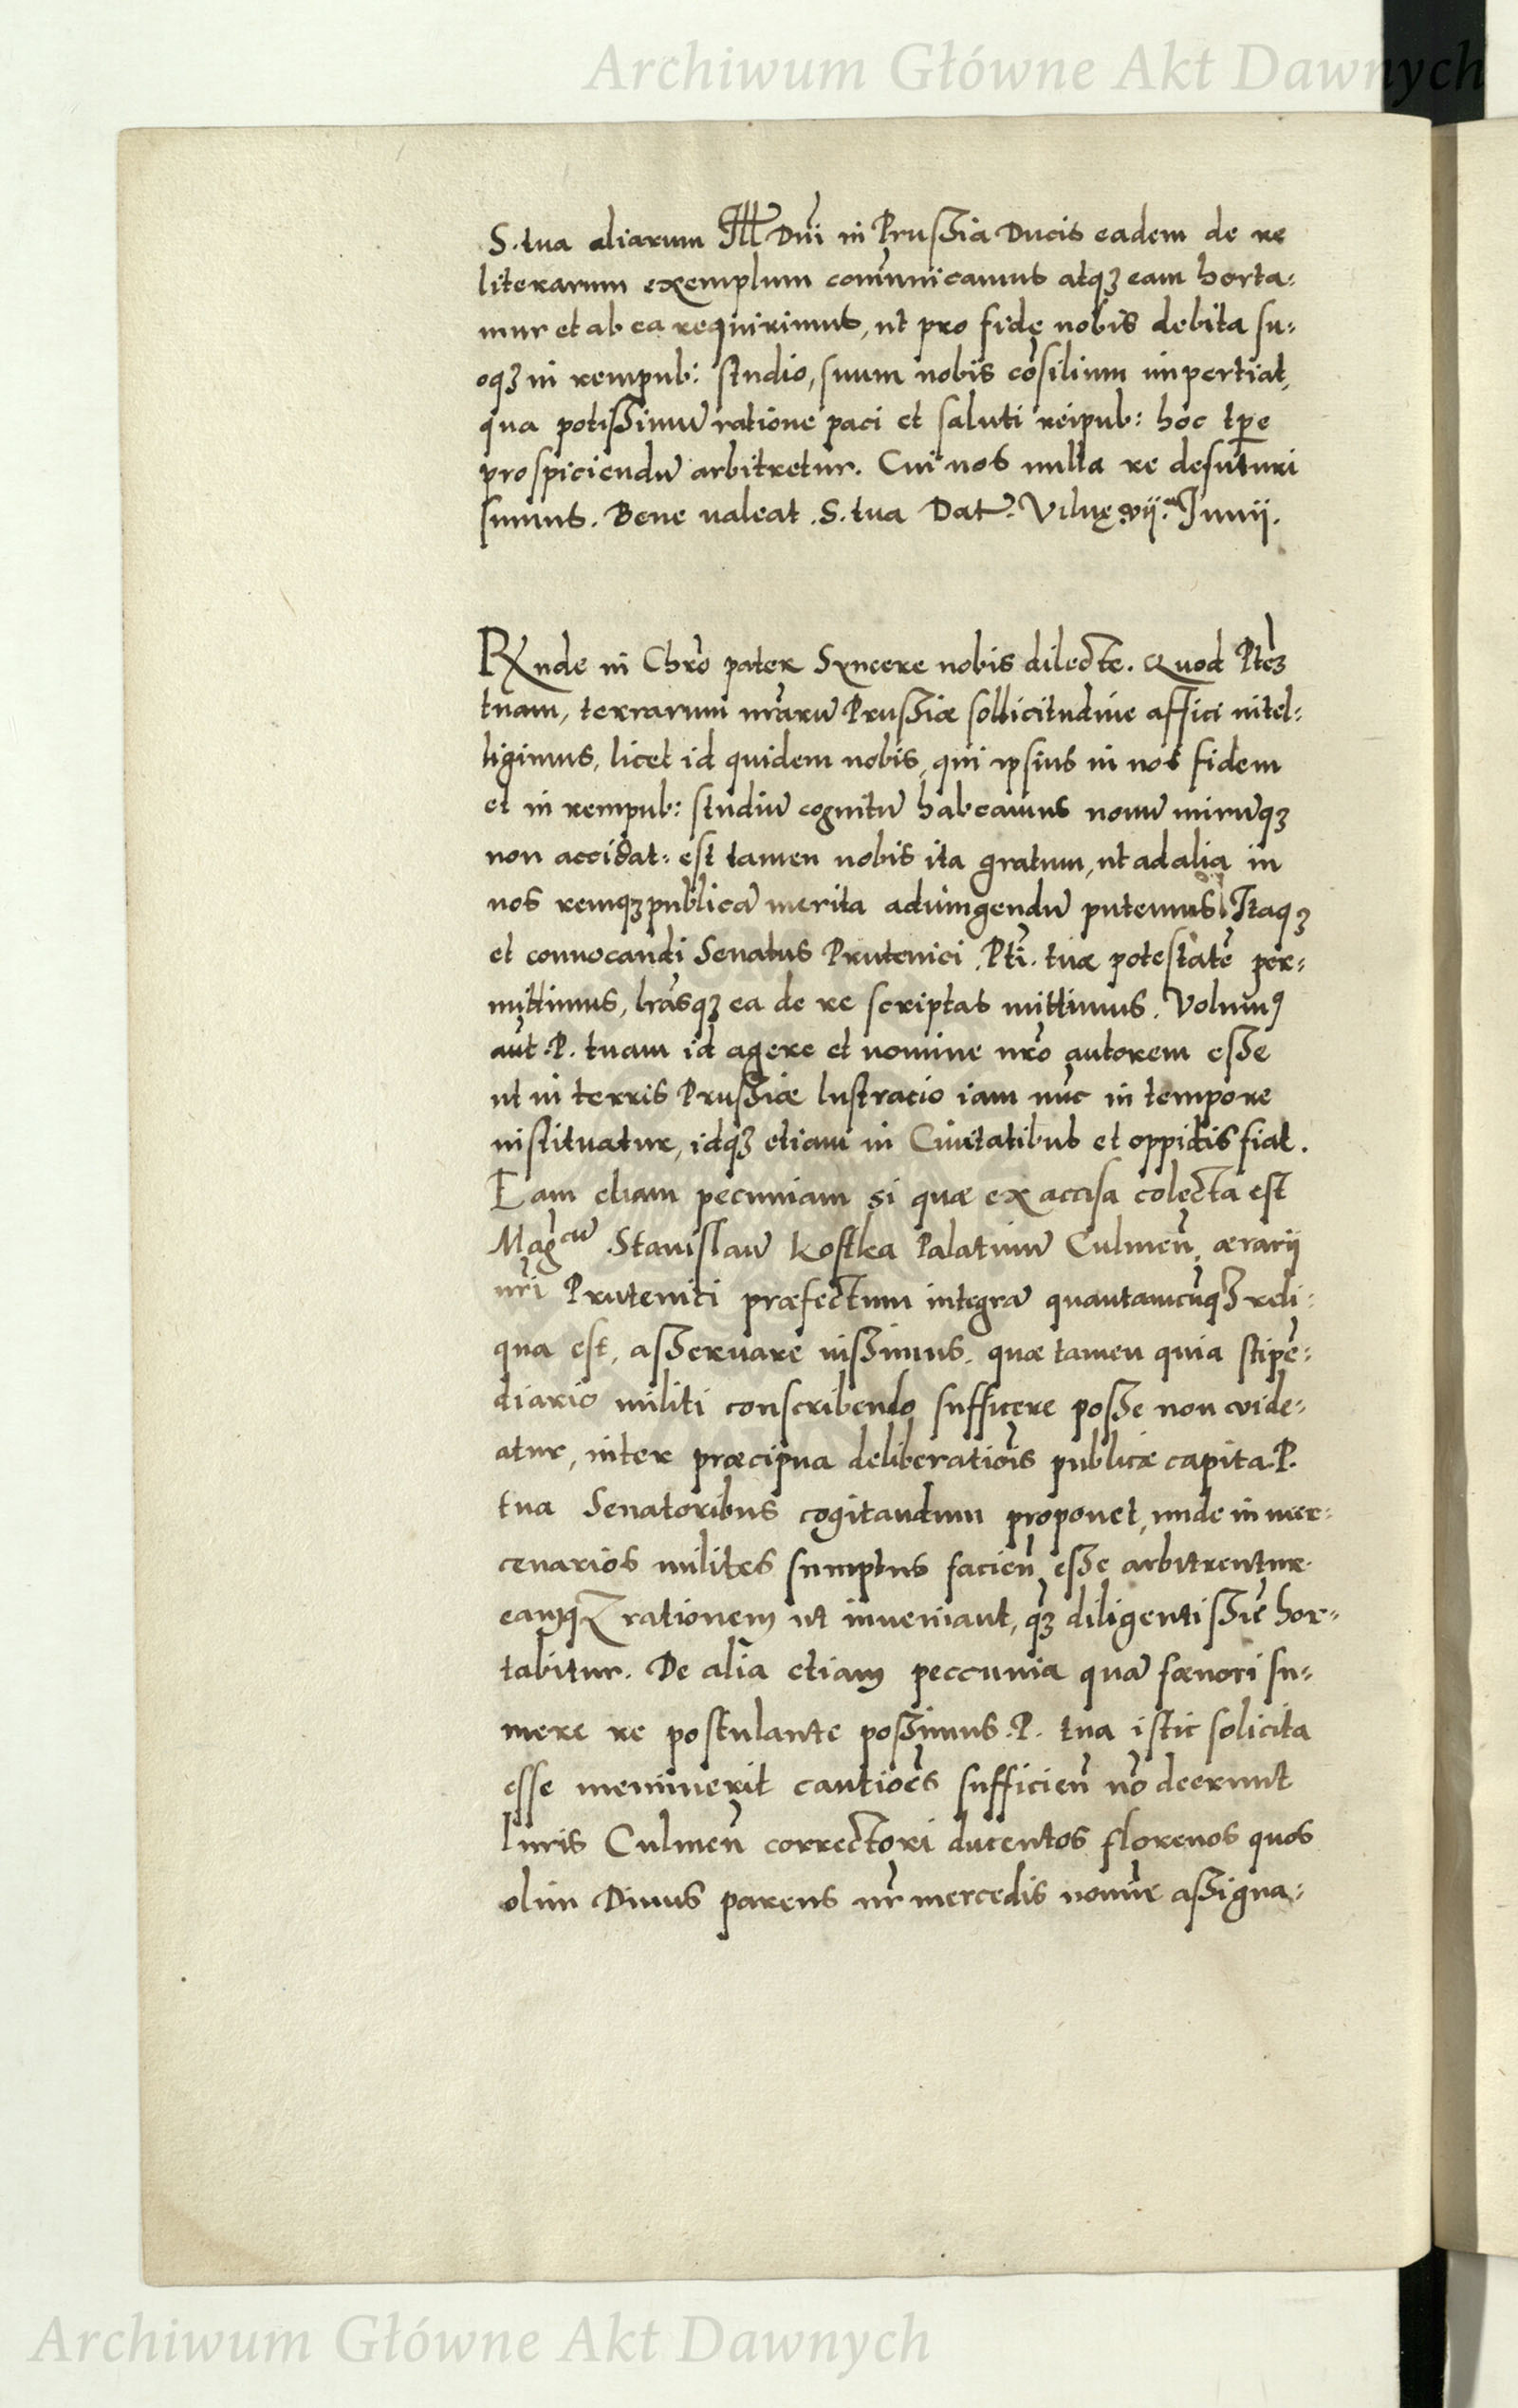 Archiwum Główne Akt Dawnych
S. tua aliarum Ill Dni in Prussia Ducis eadem de re
literarum exemplum comunicamus atq3 eam horta=
mur et ab ea requirimus, ut pro fide nobis debita su=
oq3 in rempub: studio, suum nobis cosilium impertiat,
qua potissimu ratione paci et saluti reipub: hoc tpe
prospiciendu arbitretur. Cui nos nulla re defuturi
sumus. Bene ualeat .S. tua Dat. Vilnę vij. Junij.
Rnde in Chro pater Syncere nobis dilecte. Quod Ptem
tuam, terrarum nraru Prussiæ sollicitudine affici intel=
ligimus, licet id quidem nobis, qui ipsius in nos fidem
et in rempub: studiu cognitu habeamus nouu miruq3
non accidat: est tamen nobis ita gratum, ut ad alia in
nos remq3 publica merita adiungendu putemus Itaq3
et conuocandi Senatus Prutenici .Pti. tuæ potestate per=
mittimus, lrasq3 ea de re scriptas mittimus. Volumus
aut .P. tuam id agere et nomine nro autorem esse
ut in terris Prussiæ lustracio iam nuc in tempore
instituatur, idq3 etiam in Ciuitatibus et oppidis fiat.
Eam etiam pecuniam si quæ ex accisa colecta est
Magcu Stanislau Kostka Palatinu Culmen, ærarij
nri Prutenici præfectum integra quantamcuq3 reli=
qua est, asseruare iussimus. quæ tamen quia stipe=
diario militi conscribendo sufficere posse non uide=
atur, inter præcipua deliberatiois publicæ capita .P.
tua Senatoribus cogitandum proponet, unde in mer=
cenarios milites sumptus facien esse arbitrentur.
eamq3 rationem ut inueniant, q3 diligentissie hor=
tabitur. De alia etiam peccunia qua fœnori su=
mere re postulante possimus .P. tua istic solicita
esse meminerit cautioes sufficien no deerunt
Iuris Culmen correctori ducentos florenos quos
olim Diuus parens nr mercedis nomie assigna=
Archiwum Główne Akt Dawnych